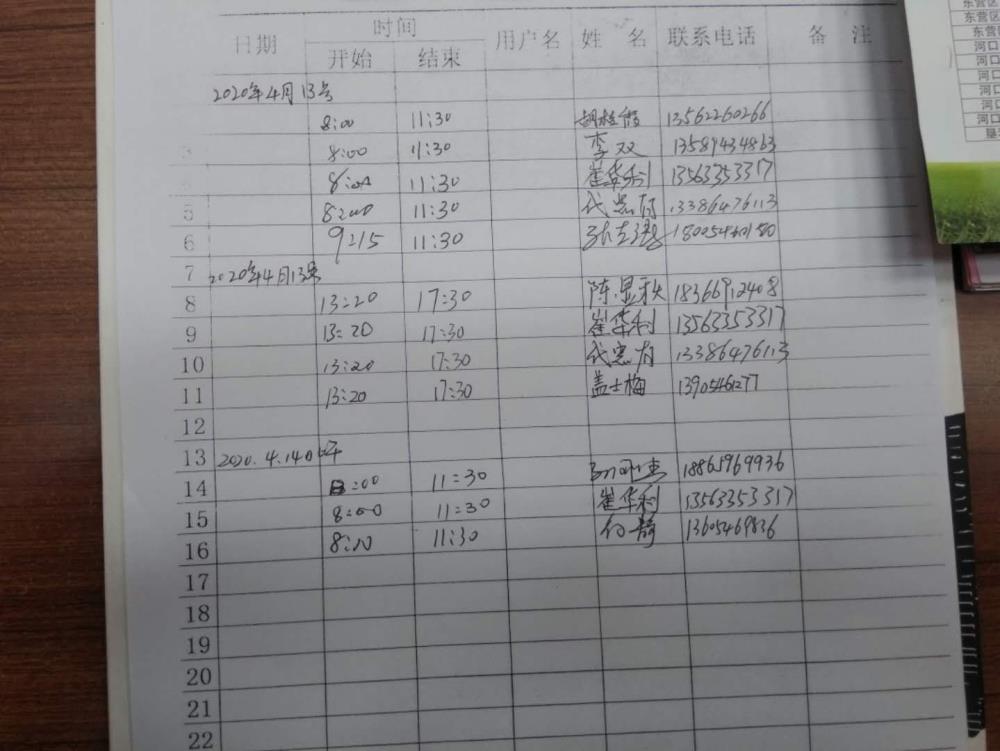 日期 时间 用户名 姓 名 联系电话 备 注
开始 结束
2020年4月13号
8:00 11:30 13562260266
8:00 11:30 李双 13589434863
8:00 11:30 崔华利 13563353317
5 8:00 11:30 代忠有 13386476113
6 9:15 11:30
7 2020年4月13号
8 13:20 17:30 陈显秋 18366912408
9 13:20 17:30 崔华利 13563353317
10 13:20 17:30 代忠有 13386476113
11 13:20 17:30 盖士梅 13905461277
12
13 2020.4.14日
14 8:00 11:30 18865969936
15 8:00 11:30 崔华利 13563353317
16 8:00 11:30 13605469836
17
18
19
20
21
22
东营区
东营区
河口
河口
河口
河口
河口
河口